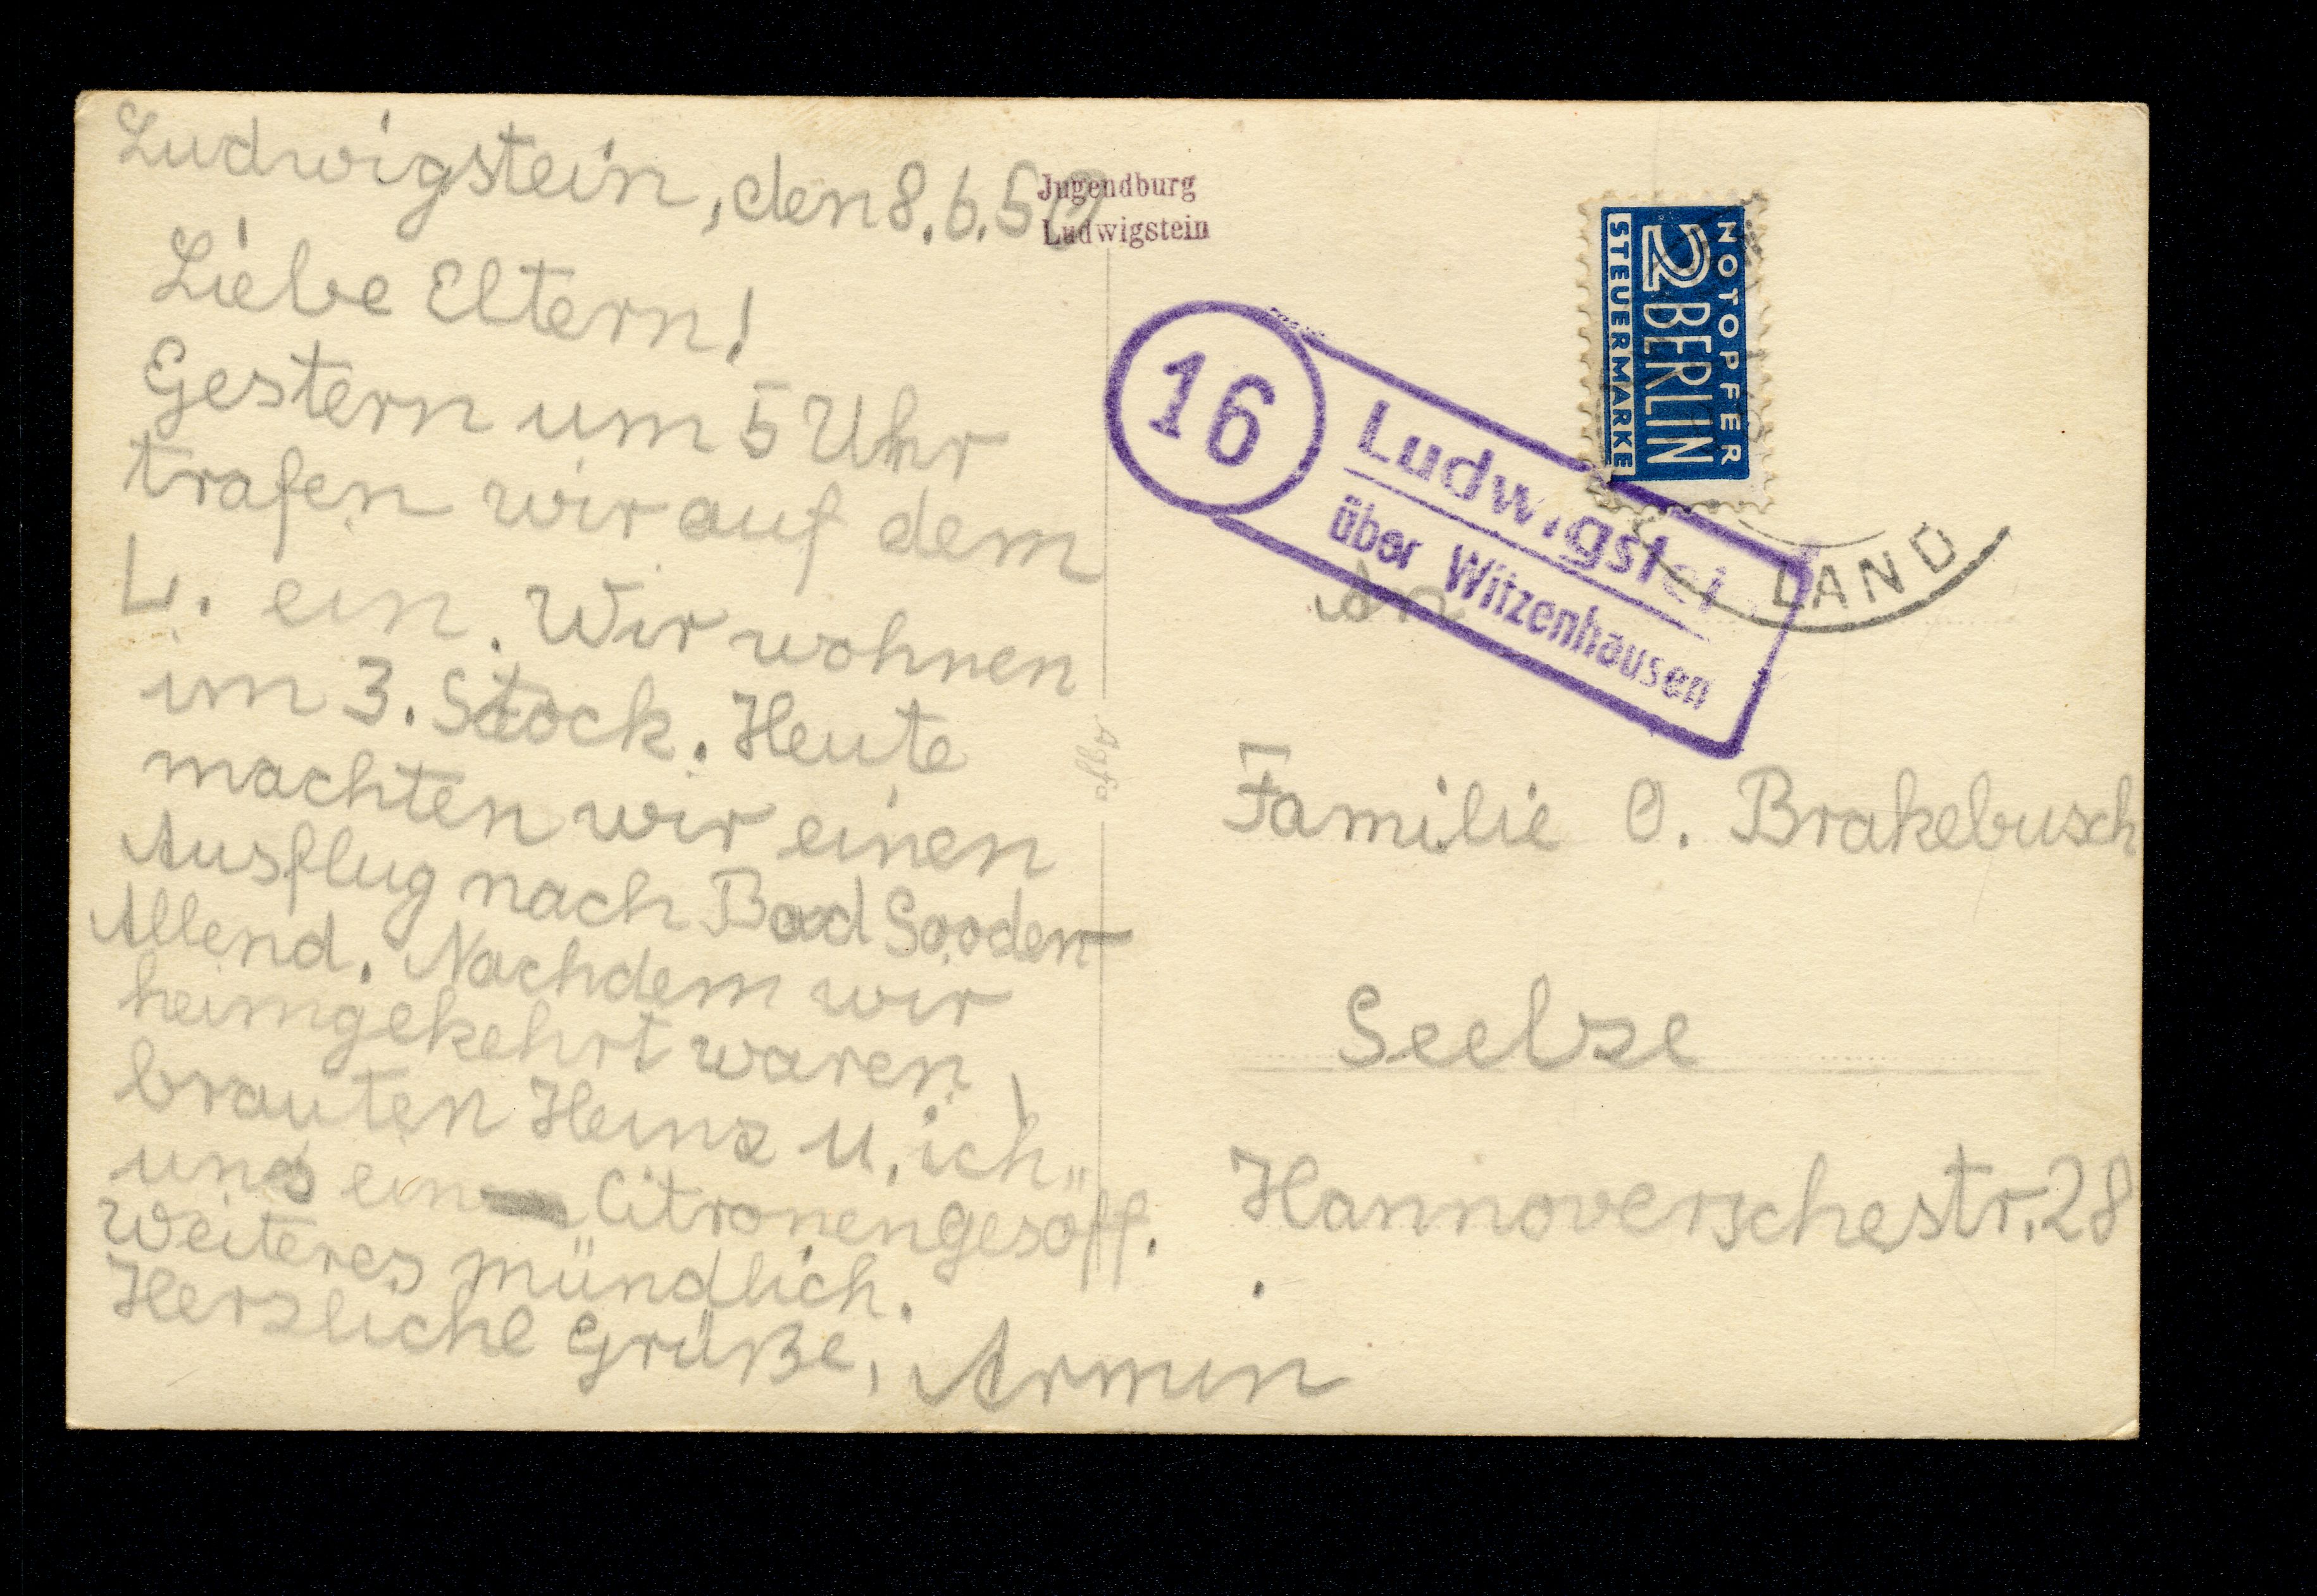 Ludwigstein, den 8.6.50
Liebe Eltern!
Gestern um 5 Uhr
trafen wir auf dem
L. ein. Wir wohnen
im 3. Stock. Heute
machten wir einen
Ausflug nach Bad Sooden-
Allend. Nachdem wir
heimgekehrt waren,
brauten Heinz u. ich
uns ein „Citronengesöff.
Weiteres mündlich.
Herzliche Grüße, Armin
Jugendburg
Ludwigstein
16
Ludwigstei
über Witzenhausen
NOTOPFER
2 BERLIN
STEUERMARKE
LAND
Agfa
An
Familie O. Brakebusch
Seelze
Hannoverschestr. 28